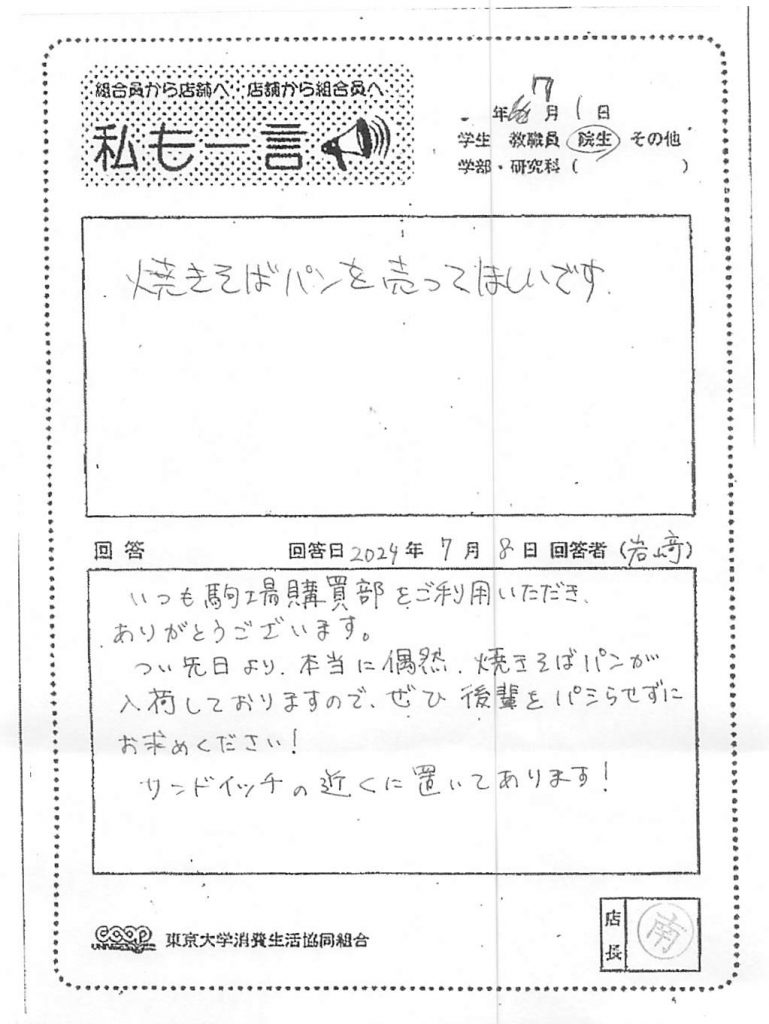 組合員から店舗へ 店舗から組合員へ
私も一言
年7月1日
学生 教職員 院生 その他
学部・研究科( )
焼きそばパンを売ってほしいです.
回答 回答日2024年7月8日 回答者(岩崎)
いつも駒場購買部をご利用いただき、
ありがとうございます。
つい先日より、本当に偶然、焼きそばパンが
入荷しておりますので、ぜひ後輩をパシらせずに
お求めください!
サンドイッチの近くに置いてあります!
coop 東京大学消費生活協同組合
店長 南